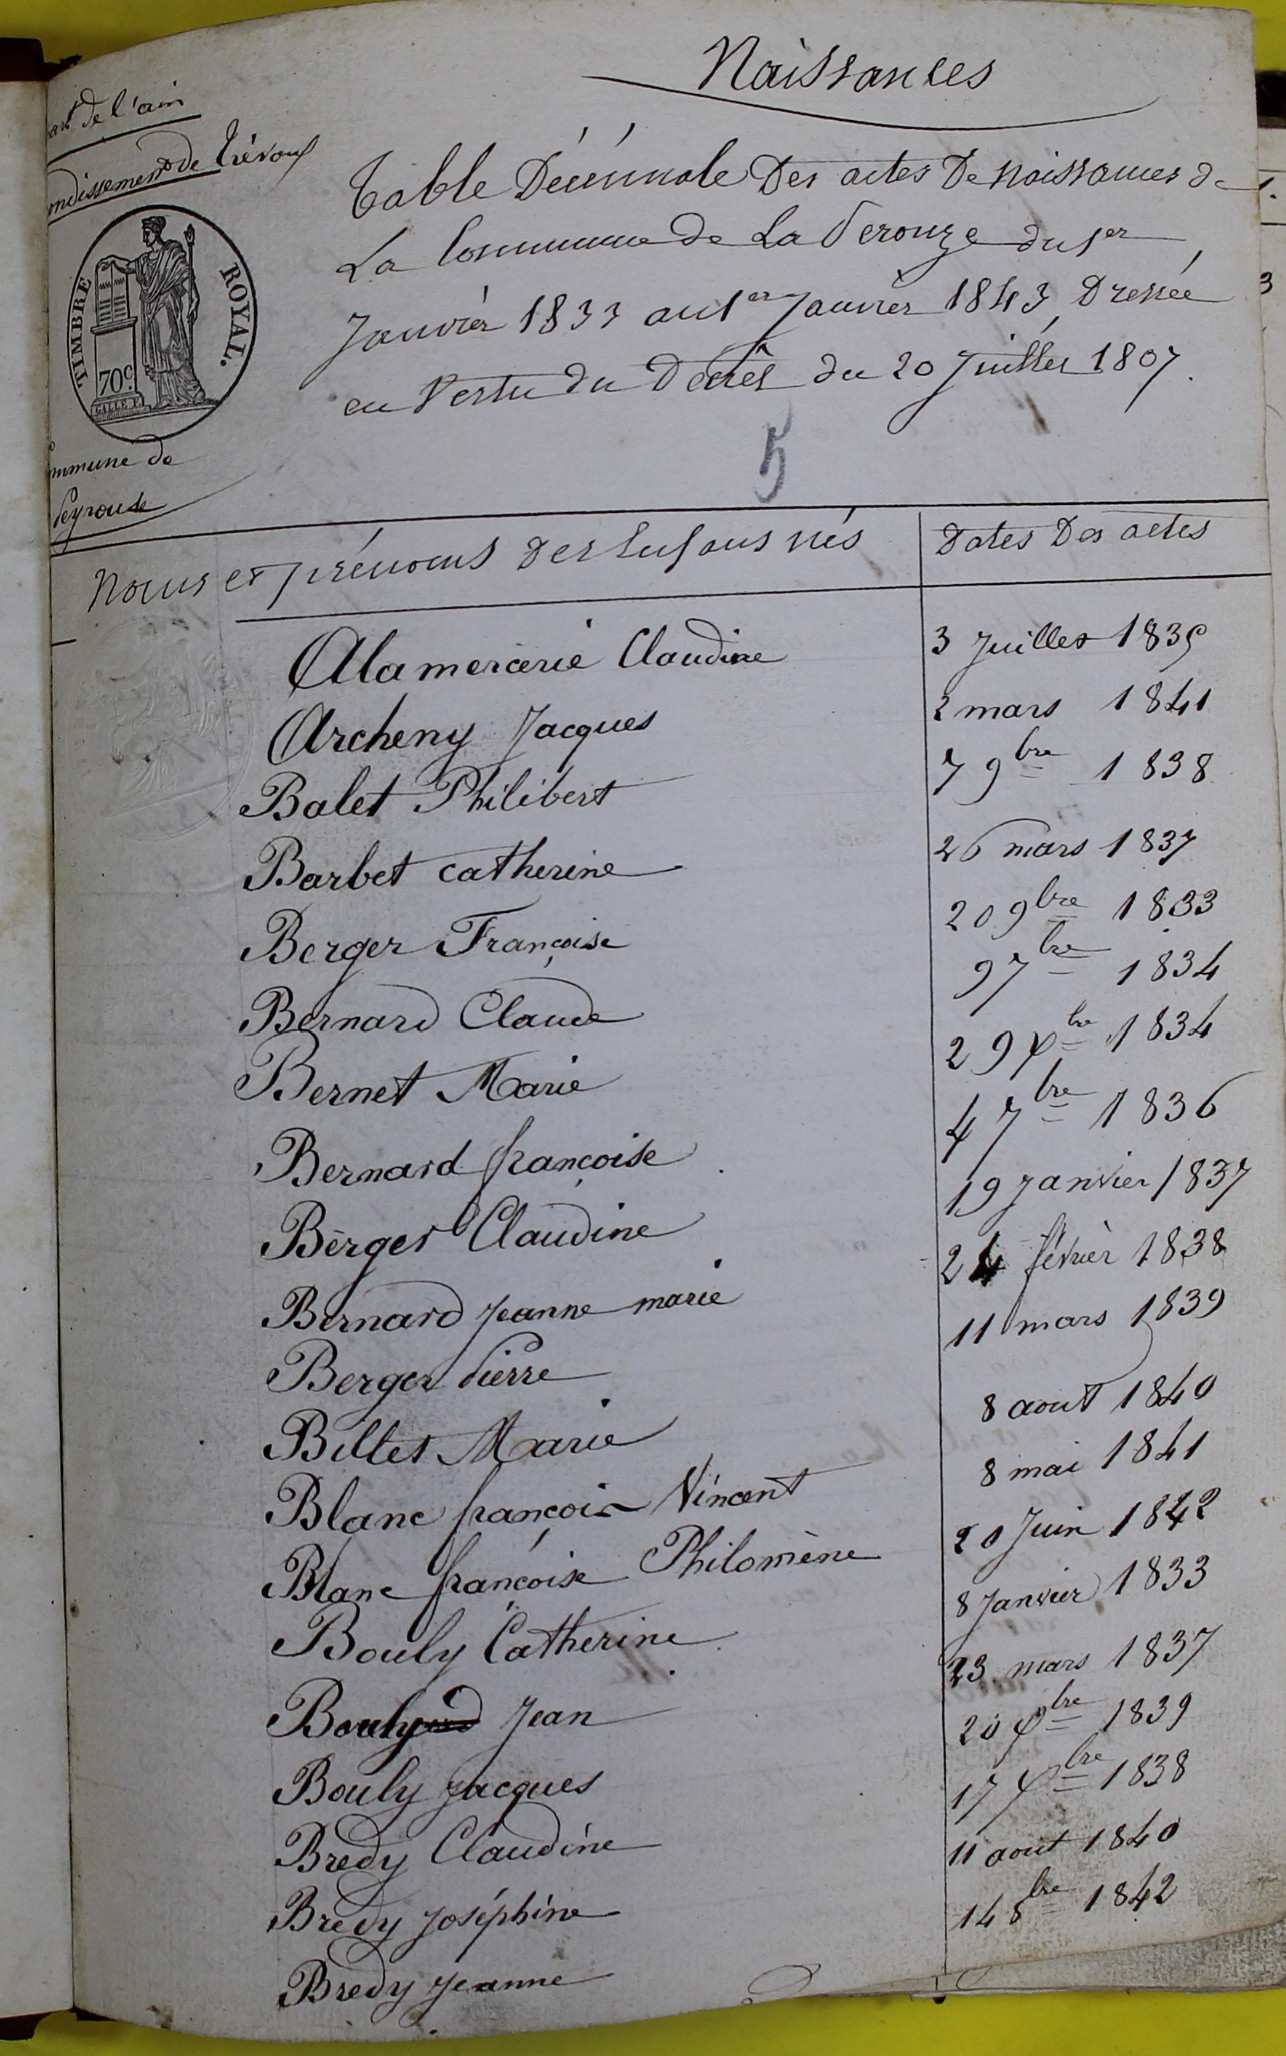 Naissances
de l'ain
ndissement de Trévoux
Table Décennale Des actes De Naissances de
La Commune de La Perouze du 1er
Janvier 1833 au 1er Janvier 1843 Dressée
en Vertu du Décrèt du 20 Juillet 1807.
TIMBRE ROYAL.
70c.
mmune de
Peyrouse
5
Noms et prénoms Des Enfans nés Dates Des actes
Alamercerie Claudine 3 Juillet 1835
Archeny Jacques 2 mars 1841
Balet Philibert 7 9bre 1838
Barbet catherine 26 mars 1837
Berger Françoise 20 9bre 1833
Bernard Claude 9 7bre 1834
Bernet Marie 29 Xbre 1834
Bernard françoise 4 7bre 1836
Berger Claudine 19 Janvier 1837
Bernard jeanne marie 24 février 1838
Berger Pierre 11 mars 1839
Billet Marie 8 aout 1840
Blanc françois Vincent 8 mai 1841
Blanc françoise Philomène 20 Juin 1842
Bouly Catherine 8 Janvier 1833
Bouly Jean 23 mars 1837
Bouly jacques 20 Xbre 1839
Bredy Claudine 17 Xbre 1838
Bredy Joséphine 11 aout 1840
Bredy jeanne 14 8bre 1842